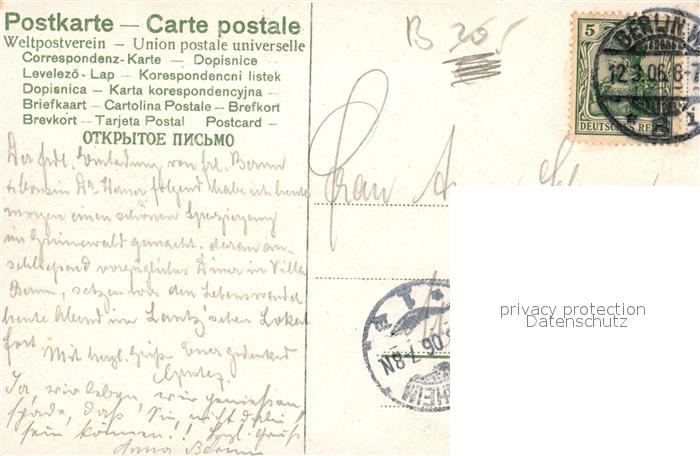 Postkarte — Carte postale
Weltpostverein — Union postale universelle
Correspondenz-Karte — Dopisnice
Levelező-Lap — Korespondencni listek
Dopisnica — Karta korespondencyjna —
Briefkaart — Cartolina Postale — Brefkort
Brevkort — Tarjeta Postal Postcard —
ОТКРЫТОЕ ПИСЬМО
B
5
DEUTSCHES REI
BERLIN W
12.3.06.6-7
Frau
Der frdl. Einladung von frl. Bernn
folgend habe ich heute
morgen einen schönen Spaziergang
im Grunewald gemacht. daran an-
schließend vorzügliches Diner in Villa
setzen wir den Lebenswandel
heute Abend im Lokal
fort.
Mit herzl. Grüße Euer gedenkend
Ja, wir leben, wir genießen
schade, daß Sie nicht dabei
sein können!! Herzl. Gruß
Anna
06.7-8N
HEIM
privacy protection
Datenschutz